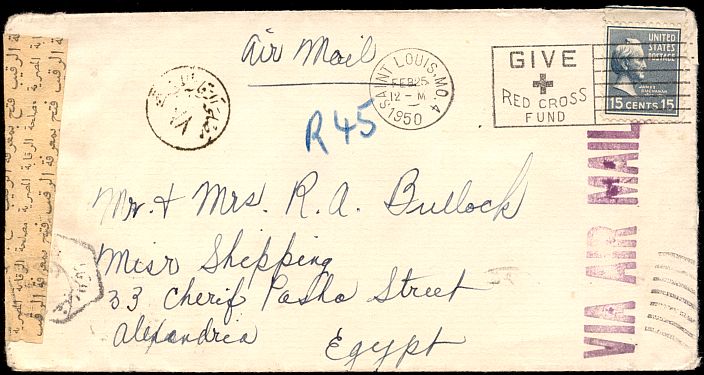 Air Mail
SAINT LOUIS, MO. 4
FEB 25
12 - M
1950
GIVE
RED CROSS
FUND
UNITED
STATES
POSTAGE
JAMES
BUCHANAN
15 CENTS 15
R 45
VIA AIR MAIL
Mr. & Mrs. R. A. Bullock
Misr Shipping
33 Cherif Pasha Street
Alexandria
Egypt
فتح بمعرفة الرقيب
مصلحة الرقابة المصرية